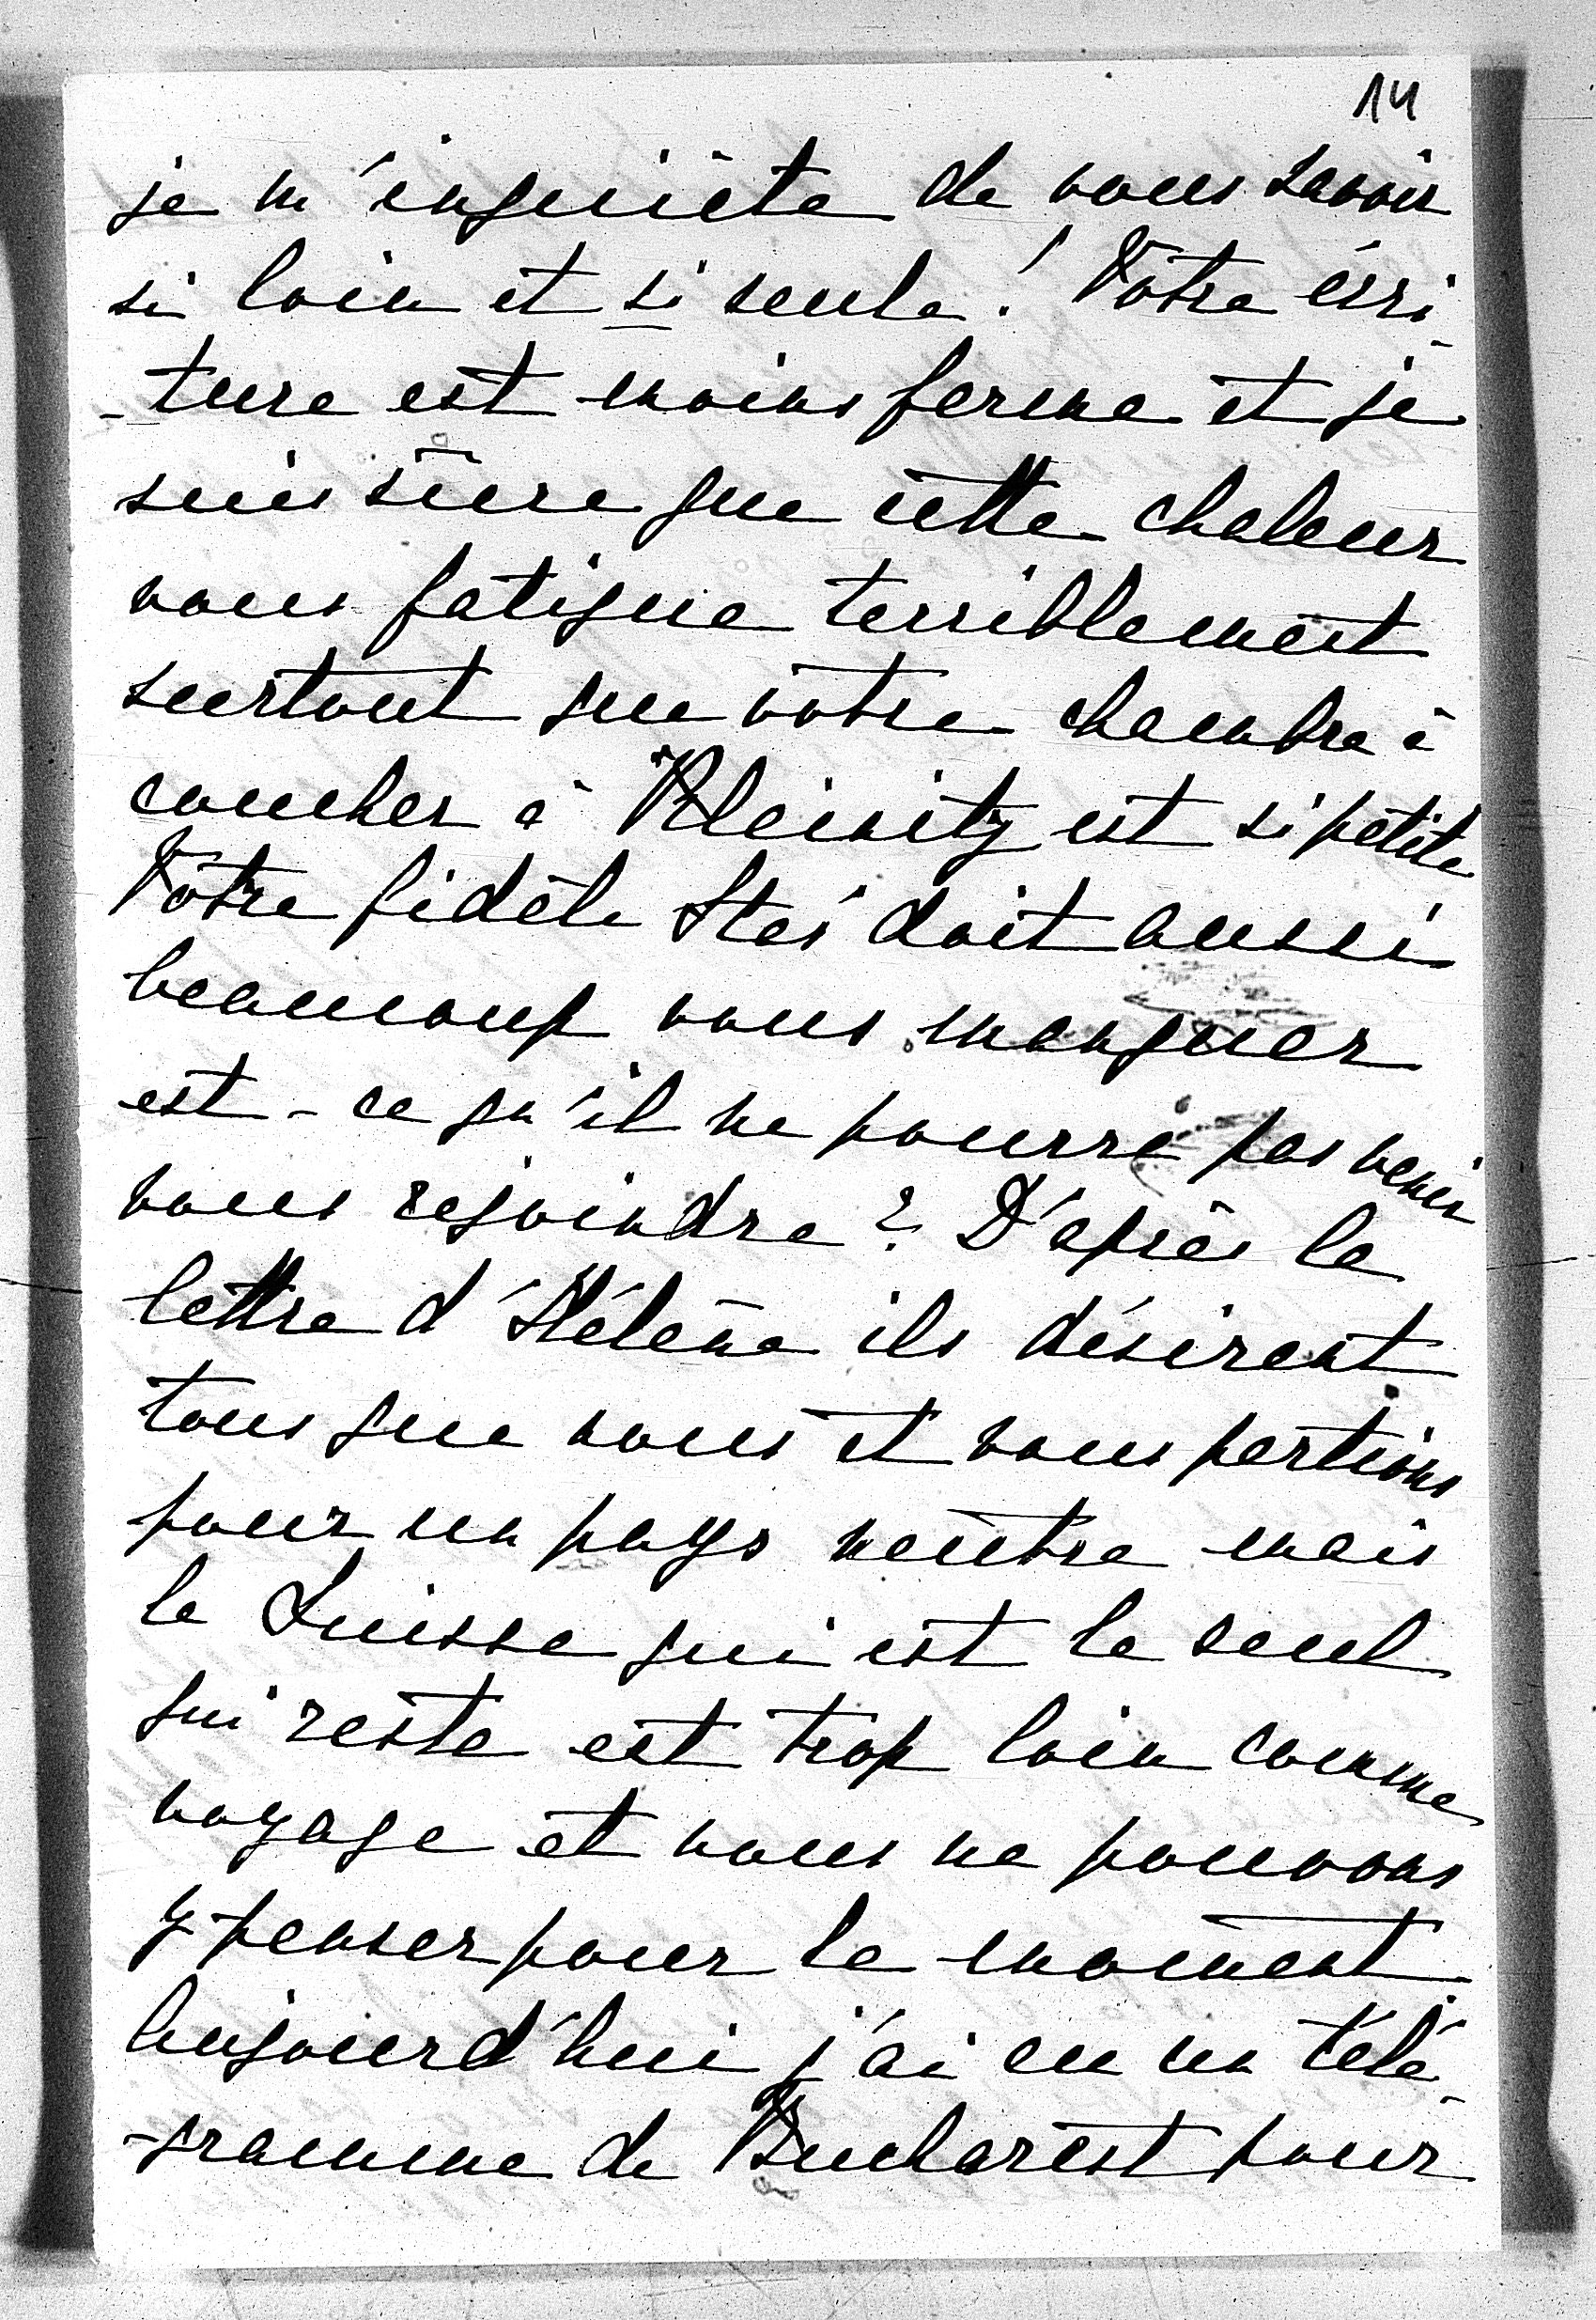 14
je m'inquiète de vous savoir
si loin et si seule! Vôtre écri
-ture est moins ferme et je
suis sûre que cette chaleur
vous fatigue terriblement
surtout que vôtre chambre à
coucher à est si petite
Vôtre fidèle doit aussi
beaucoup vous manquer
est-ce qu'il ne pourra pas venir
vous rejoindre? D'après la
lettre d'Hélène ils désirent
tous que nous et vous partions
pour un pays neutre mais
la Suisse qui est le seul
qui reste est trop loin comme
voyage et nous ne pouvons
y penser pour le moment.
Aujourd'hui j'ai eu un télé-
-gramme de Bucharest pour